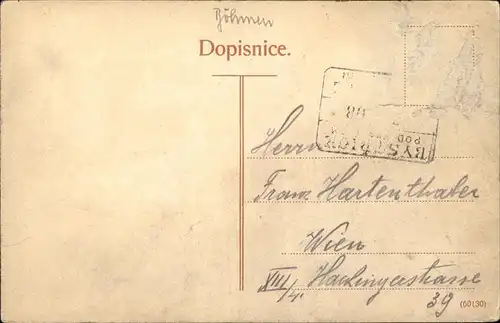 Böhmen
Dopisnice.
BYSTŘICE
POD
Herrn
Franz Hartenthaler
Wien
XIII/4. Hackingerstrasse
39
(60130)